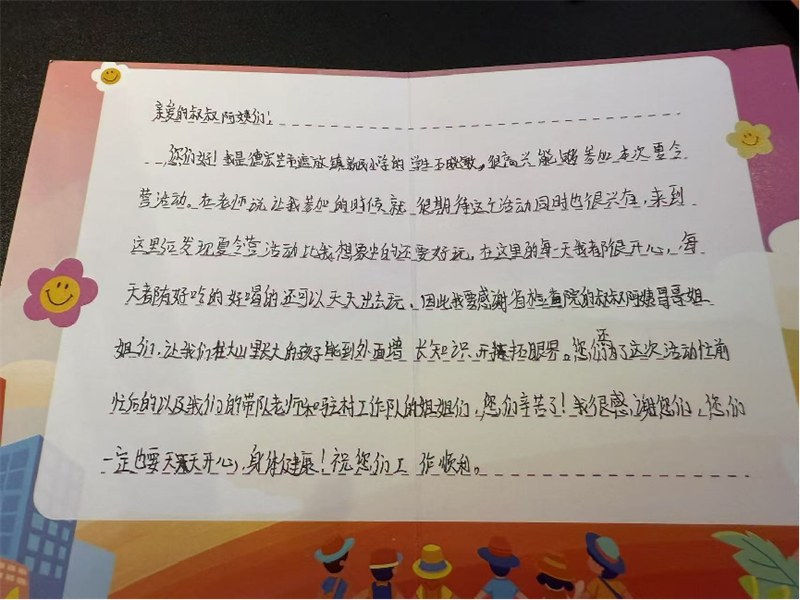 亲爱的叔叔阿姨们:
您们好!我是德宏芒市遮放镇户民小学的学生王晓微。很高兴能够参加本次夏令
营活动。在老师说让我参加的时候就很期待这个活动同时也很兴奋,来到
这里后发现夏令营活动比我想象中的还要好玩,在这里的每一天我都很开心,每
天都有好吃的好喝的还可以天天出去玩。因此我要感谢省检查院的叔叔阿姨哥哥姐
姐们,让我们在大山里长大的孩子能到外面增长知识开拓眼界。您们为了这次活动忙前
忙后的以及我们的带队老师和驻村工作队的姐姐们,您们辛苦了!我很感谢您们,您们
一定也要天天开心,身体健康!祝您们工作顺利。